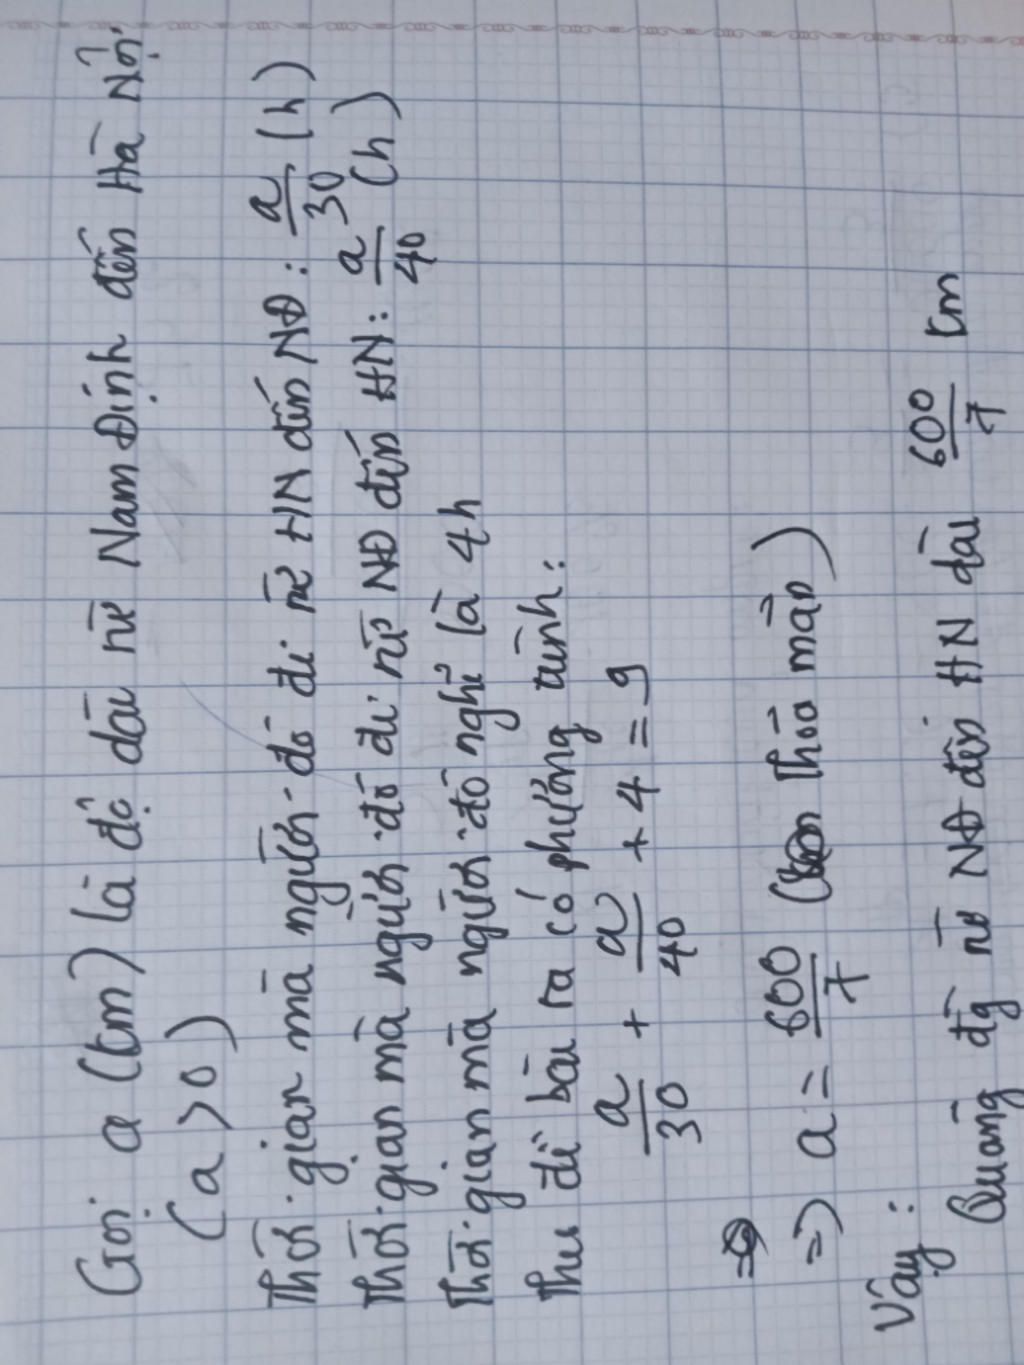 Gọi a (km) là độ dài từ Nam Định đến Hà Nội
(a > 0)
Thời gian mà người đó đi từ HN đến NĐ: a/30 (h)
Thời gian mà người đó đi từ NĐ đến HN: a/40 (h)
Thời gian mà người đó nghỉ là 4h
Theo đề bài ra có phương trình:
a/30 + a/40 + 4 = 9
=> a = 600/7 (Thỏa mãn)
Vậy:
Quãng đg từ NĐ đến HN dài 600/7 km